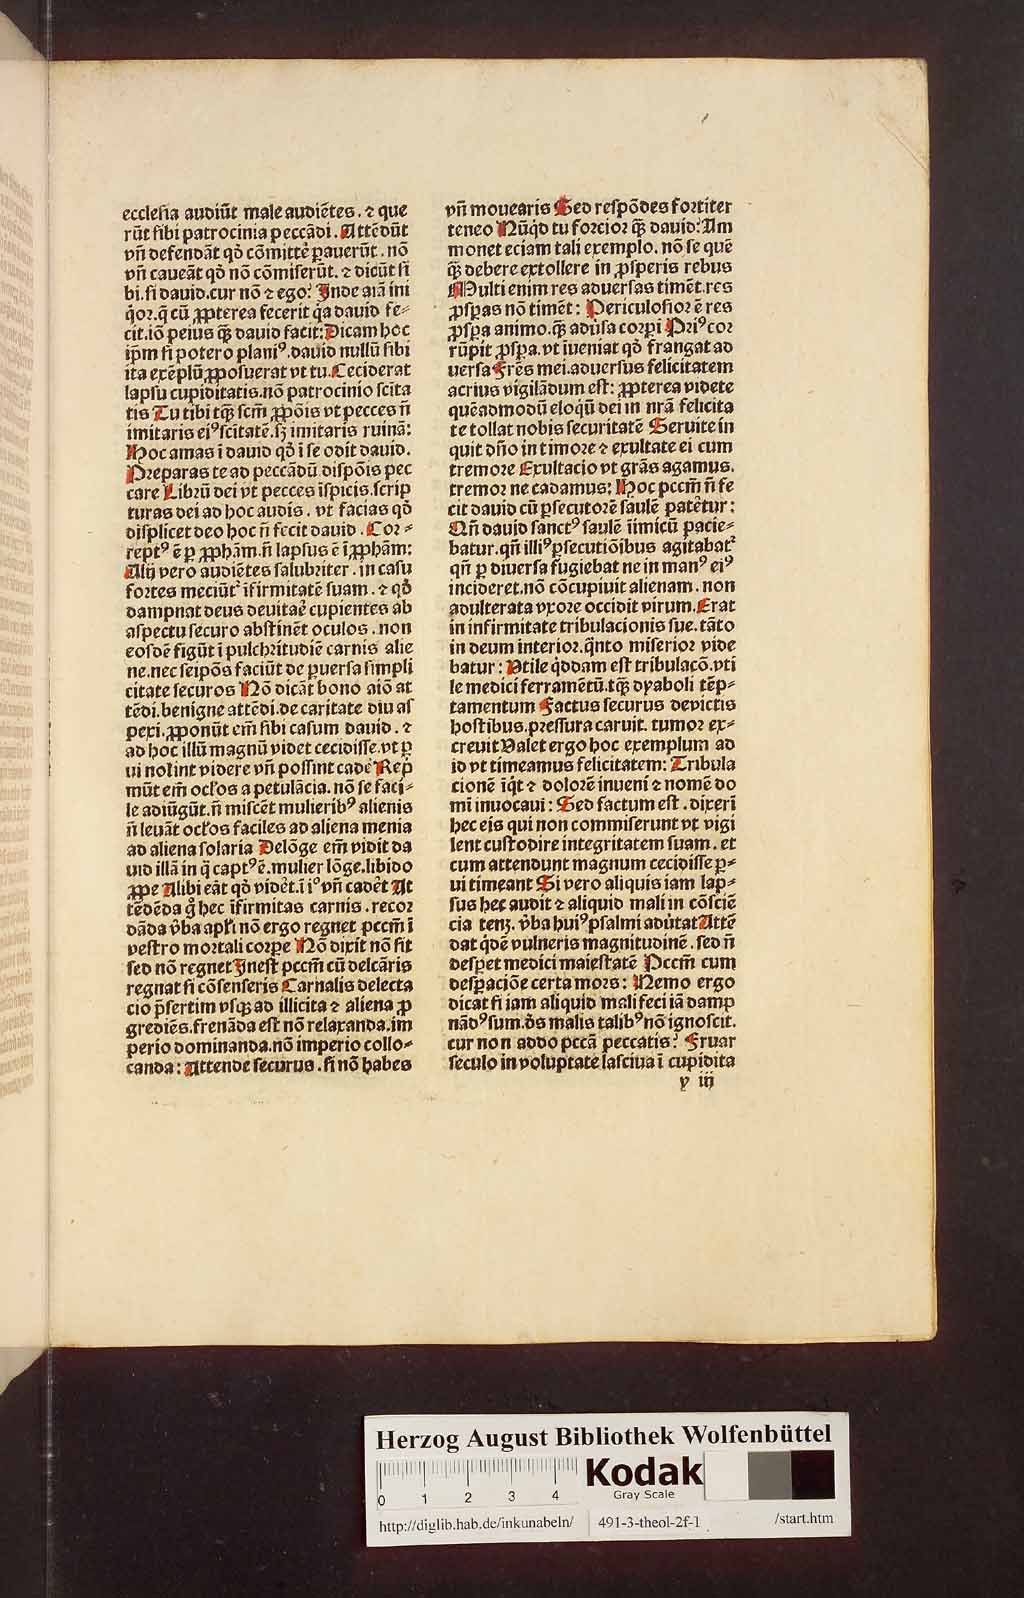 ecclesia audiūt male audiētes. ⁊ que
rūt sibi patrocinia peccādi. Attēdūt
vñ defendāt qđ cōmittē pauerūt. nō
vñ caueāt qđ nō cōmiserūt. ⁊ dicūt si
bi. si dauid. cur nō ⁊ ego? Inde aīā ini
q̇or. q̄ cū ꝓpterea fecerit q̇a dauid fe⸗
cit. iō peius q̄ꝫ dauid facit: Dicam hoc
ip̄m si potero planiꝰ. dauid nullū sibi
ita exēplū ꝓposuerat vt tu. Ceciderat
lapsu cupiditatis. nō patrocinio scīta
tis Tu tibi tq̄ꝫ scm̄ ꝓpōis vt pecces ñ
imitaris eiꝰ scītatē. sꝫ imitaris ruinā:
Hoc amas ī dauid qđ ī se odit dauid.
Preparas te ad peccādū dispōis pec
care Librū dei vt pecces īspicis. scrip
turas dei ad hoc audis. vt facias qđ
displicet deo hoc ñ fecit dauid. Cor⸗
reptꝰ ē ꝑ ꝓphām. ñ lapsus ē ī ꝓphām:
Alij vero audiētes salubriter. in casu
fortes meciūt᷑ īfirmitatē suam. ⁊ qđ
dampnat deus deuitaē cupientes ab
aspectu securo abstinēt oculos. non
eosdē figūt ī pulchritudīe carnis alie
ne. nec seipōs faciūt de ꝑuersa simpli
citate securos Nō dicāt bono aīo at
tēdi. benigne attēdi. de caritate diu as
pexi. ꝓponūt em̄ sibi casum dauid. ⁊
ad hoc illū magnū videt cecidisse. vt ꝑ
ui nolint videre vñ possint cadē Rep̄
mūt em̄ oclōs a petulācia. nō se faci⸗
le adiūgūt. ñ miscēt mulieribꝰ alienis
ñ leuāt oclōs faciles ad aliena menia
ad aliena solaria Delōge em̄ vidit da
uid illā in q̄ captꝰ ē. mulier lōge. libido
ꝓpe Alibi eāt qđ vidēt. ī iꝰ vñ cadēt At
tēdēda q̇ hec īfirmitas carnis. recor
dāda v̄ba apl̄i nō ergo regnet pccm̄ ī
vestro mortali corpe Nō dixit nō sit
sed nō regnet Inest pccm̄ cū delcāris
regnat si cōsenseris Carnalis delecta
cio p̄sertim vsqꝫ ad illicita ⁊ aliena ꝓ
grediēs. frenāda est nō relaxanda. im
perio dominanda. nō imperio collo⸗
canda: Attende securus. si nō habes
vñ mouearis Sed respōdes fortiter
teneo Nūq̇d tu forcior q̄ꝫ dauid? Am
monet eciam tali exemplo. nō se quē
q̄ꝫ debere extollere in ꝓsperis rebus
Multi enim res aduersas timēt. res
ꝓspas nō timēt: Periculosior ē res
ꝓspa animo. q̄ꝫ adūsa corpi Priꝰ cor
rūpit ꝓspa. vt īueniat qđ frangat ad
uersa Frēs mei. aduersus felicitatem
acrius vigilādum est: ꝓpterea videte
quēadmodū eloq̄ū dei in nrā felicita
te tollat nobis securitatē Seruite in
quit dño in timore ⁊ exultate ei cum
tremore Exultacio vt grās agamus.
tremor ne cadamus: Hoc pccm̄ ñ fe
cit dauid cū ꝑsecutorē saulē patētur:
Qñ dauid sanctꝰ saulē īimicū pacie⸗
batur. qñ illiꝰ ꝑsecutiōibus agitabat᷑
qñ ꝑ diuersa fugiebat ne in manꝰ eiꝰ
incideret. nō cōcupiuit alienam. non
adulterata vxore occidit virum. Erat
in infirmitate tribulacionis sue. tāto
in deum interior. q̇nto miserior vide
batur: Vtile q̇ddam est tribulacō. vti
le medici ferramētū. tq̄ꝫ dyaboli tēp⸗
tamentum Factus securus deuictis
hostibus. pressura caruit. tumor ex⸗
creuit Valet ergo hoc exemplum ad
id vt timeamus felicitatem: Tribula
cionē īq̇t ⁊ dolorē inueni ⁊ nomē do
mī inuocaui: Sed factum est. dixerī
hec eis qui non commiserunt vt vigi
lent custodire integritatem suam. et
cum attendunt magnum cecidisse ꝑ⸗
ui timeant Si vero aliquis iam lap⸗
sus hec audit ⁊ aliquid mali in cōscīe
cia tenꝫ. v̄ba huiꝰ psalmi adūtat Attē
dat q̇dē vulneris magnitudinē. sed ñ
despet medici maiestatē Pccm̄ cum
despaciōe certa mors: Nemo ergo
dicat si iam aliquid mali feci iā damp
nādꝰ sum. ds̄ malis talibꝰ nō ignoscit.
cur non addo pccā peccatis? Fruar
seculo in voluptate lasciua ī cupidita
y iij
Herzog August Bibliothek Wolfenbüttel
0 1 2 3 4
Kodak
Gray Scale
http://diglib.hab.de/inkunabeln/ 491-3-theol-2f-1 /start.htm